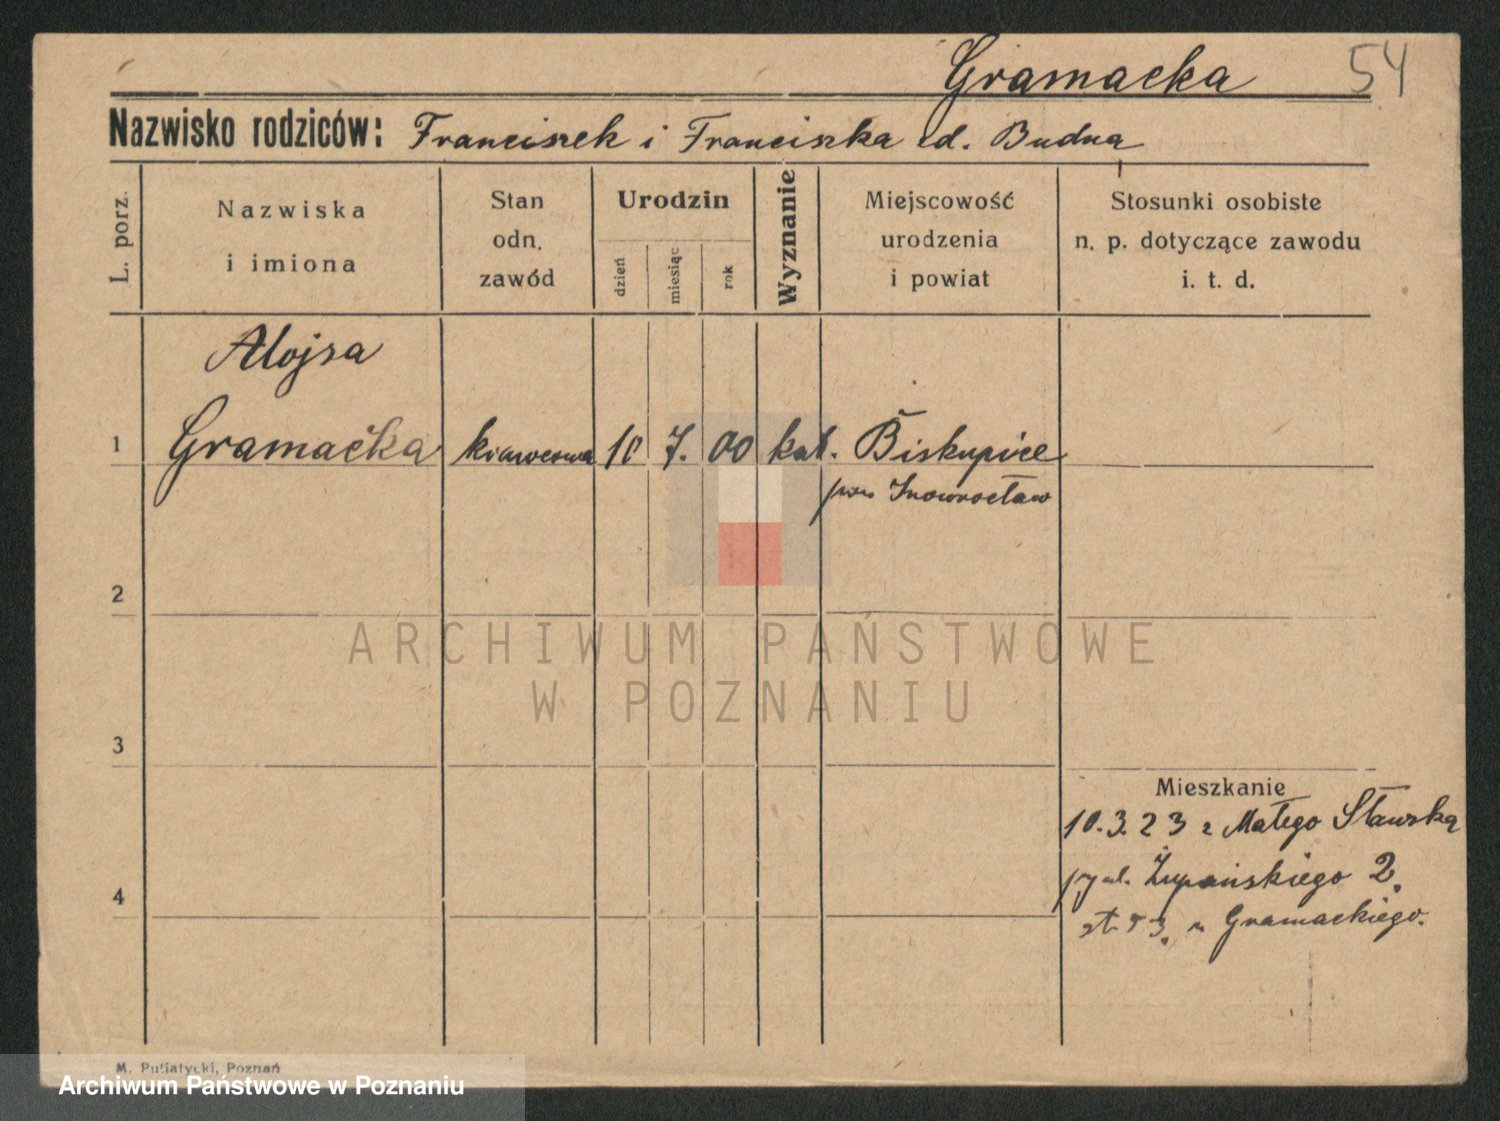 Gramacka 54
Nazwisko rodziców: Franciszek i Franciszka zd. Budna
L. porz.
Nazwiska
i imiona
Stan
odn.
zawód
Urodzin
dzień
miesiąc
rok
Wyznanie
Miejscowość
urodzenia
i powiat
Stosunki osobiste
n. p. dotyczące zawodu
i. t. d.
Alojza
1 Gramacka krawcowa 10 7. 00 kat. Biskupice
pow Inowrocław
2
ARCHIWUM PAŃSTWOWE
W POZNANIU
3
Mieszkanie
10.3.23 z Małego Sławska
przy ul. Żupańskiego 2.
4
u Gramackiego.
M. Putiatycki, Poznań
Archiwum Państwowe w Poznaniu